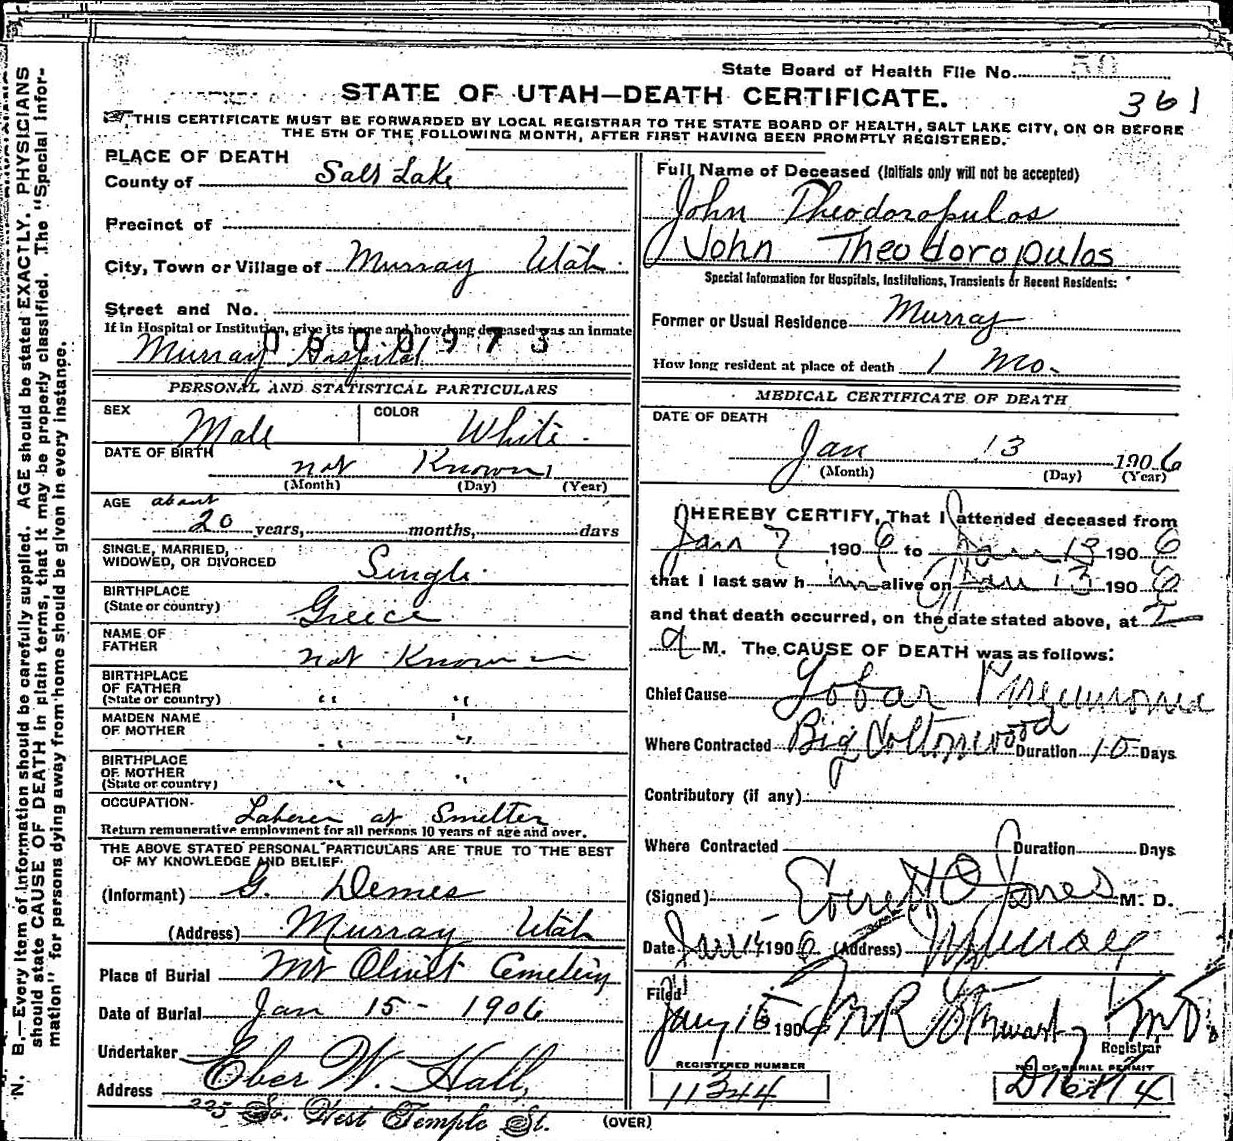 State Board of Health File No. 50
361
STATE OF UTAH—DEATH CERTIFICATE.
THIS CERTIFICATE MUST BE FORWARDED BY LOCAL REGISTRAR TO THE STATE BOARD OF HEALTH, SALT LAKE CITY, ON OR BEFORE
THE 5TH OF THE FOLLOWING MONTH, AFTER FIRST HAVING BEEN PROMPTLY REGISTERED.
N. B.—Every item of information should be carefully supplied. AGE should be stated EXACTLY. PHYSICIANS
should state CAUSE OF DEATH in plain terms, that it may be properly classified. The "Special Infor-
mation" for persons dying away from home should be given in every instance.
PLACE OF DEATH
County of Salt Lake
Precinct of
City, Town or Village of Murray Utah.
Street and No.
If in Hospital or Institution, give its name and how long deceased was an inmate
0600973
Murray Hospital
PERSONAL AND STATISTICAL PARTICULARS
SEX Male COLOR White.
DATE OF BIRTH not Known
(Month) (Day) (Year)
AGE about
20 years, months, days
SINGLE, MARRIED,
WIDOWED, OR DIVORCED Single.
BIRTHPLACE
(State or country) Greece
NAME OF
FATHER not Known
BIRTHPLACE
OF FATHER
(State or country) " "
MAIDEN NAME
OF MOTHER " "
BIRTHPLACE
OF MOTHER
(State or country) " "
OCCUPATION
Laborer at Smelter
Return remunerative employment for all persons 10 years of age and over.
THE ABOVE STATED PERSONAL PARTICULARS ARE TRUE TO THE BEST
OF MY KNOWLEDGE AND BELIEF.
(Informant) G. Demes
(Address) Murray Utah
Place of Burial Mt Olivet Cemetery
Date of Burial Jan 15 - 1906
Undertaker Eber W. Hall,
Address 225 So. West Temple St.
Full Name of Deceased (Initials only will not be accepted)
John Theodoropulos
John Theodoropulos
Special Information for Hospitals, Institutions, Transients or Recent Residents:
Former or Usual Residence Murray
How long resident at place of death 1 Mo.
MEDICAL CERTIFICATE OF DEATH
DATE OF DEATH
Jan 13 1906
(Month) (Day) (Year)
I HEREBY CERTIFY, That I attended deceased from
Jan 7 1906 to Jan 13 1906
that I last saw him alive on Jan 13 1906
and that death occurred, on the date stated above, at 2
a M. The CAUSE OF DEATH was as follows:
Chief Cause Lobar Pneumonia
Where Contracted Big Cottonwood Duration 10 Days
Contributory (if any)
Where Contracted Duration Days
(Signed) Everett O Jones M. D.
Date Jan 14 1906 (Address) Murray
Filed
Jany 15 1906 Stewart MD.
Registrar
REGISTERED NUMBER
11344
NO. OF BURIAL PERMIT
(OVER)